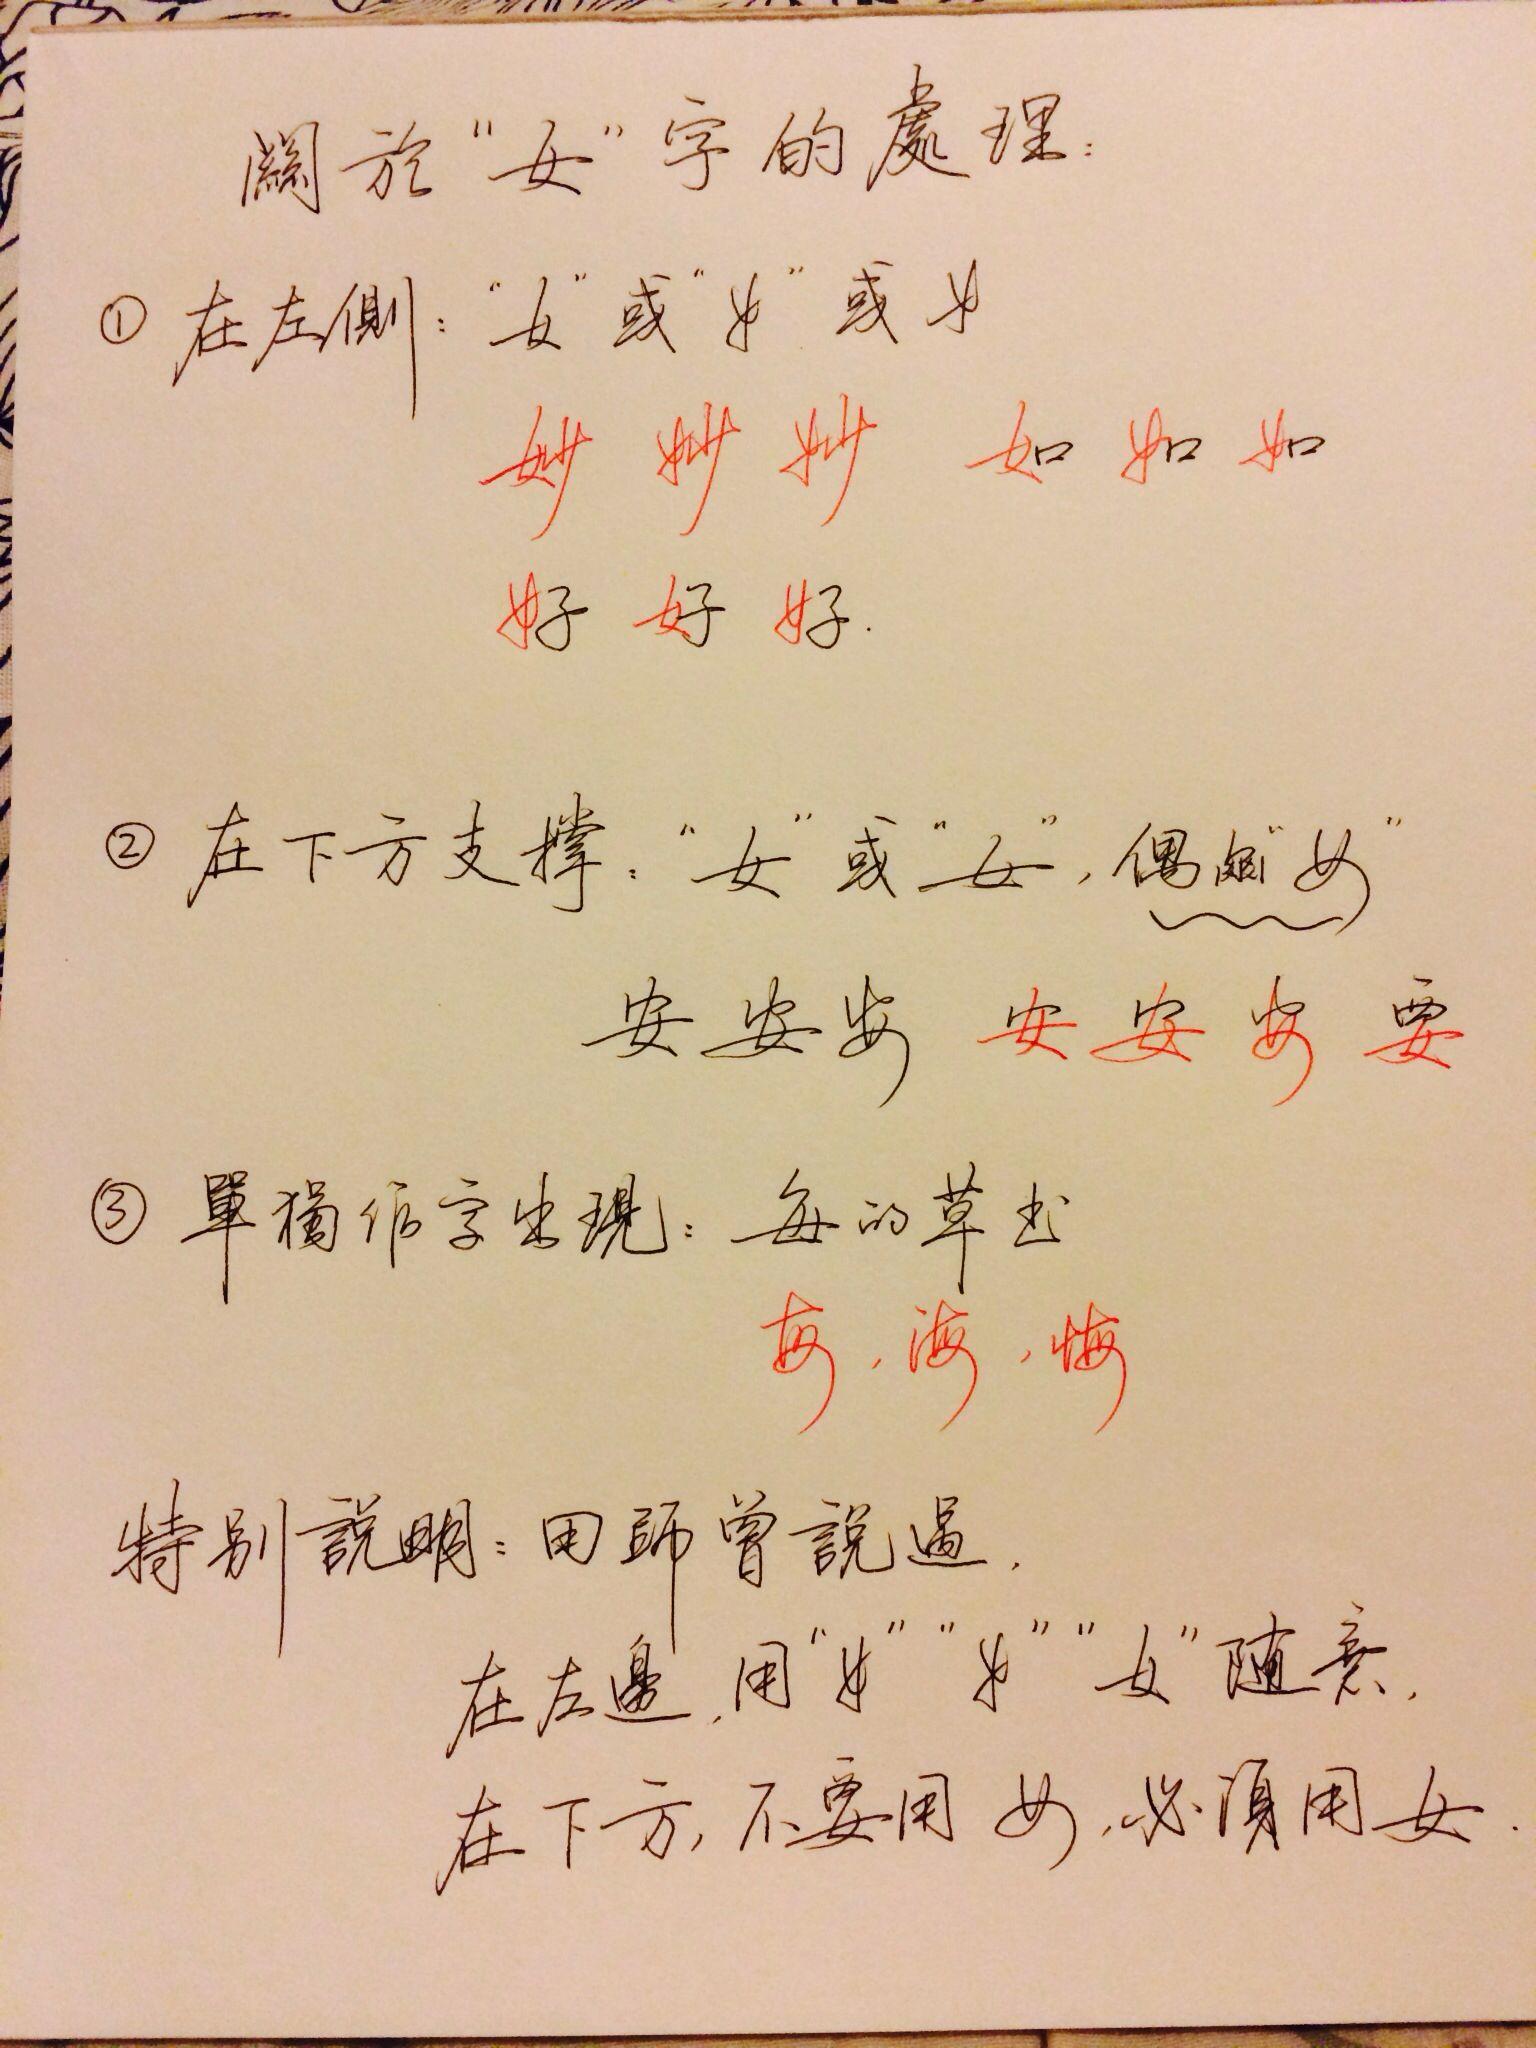 關於“女”字的處理：
① 在左側：“女”或“女”或女
妙 妙 妙 如 如 如
好 好 好.
② 在下方支撐：“女”或“女”，偶爾“女”
安 安 安 安 安 安 要
③ 單獨作字出現：每的草书
每，海，悔
特別說明：田師曾說過，
在左邊，用“女”“女”“女”隨意，
在下方，不要用女，必須用女.